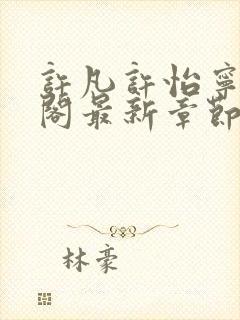 許凡許怡寧
閣最新章節
林豪